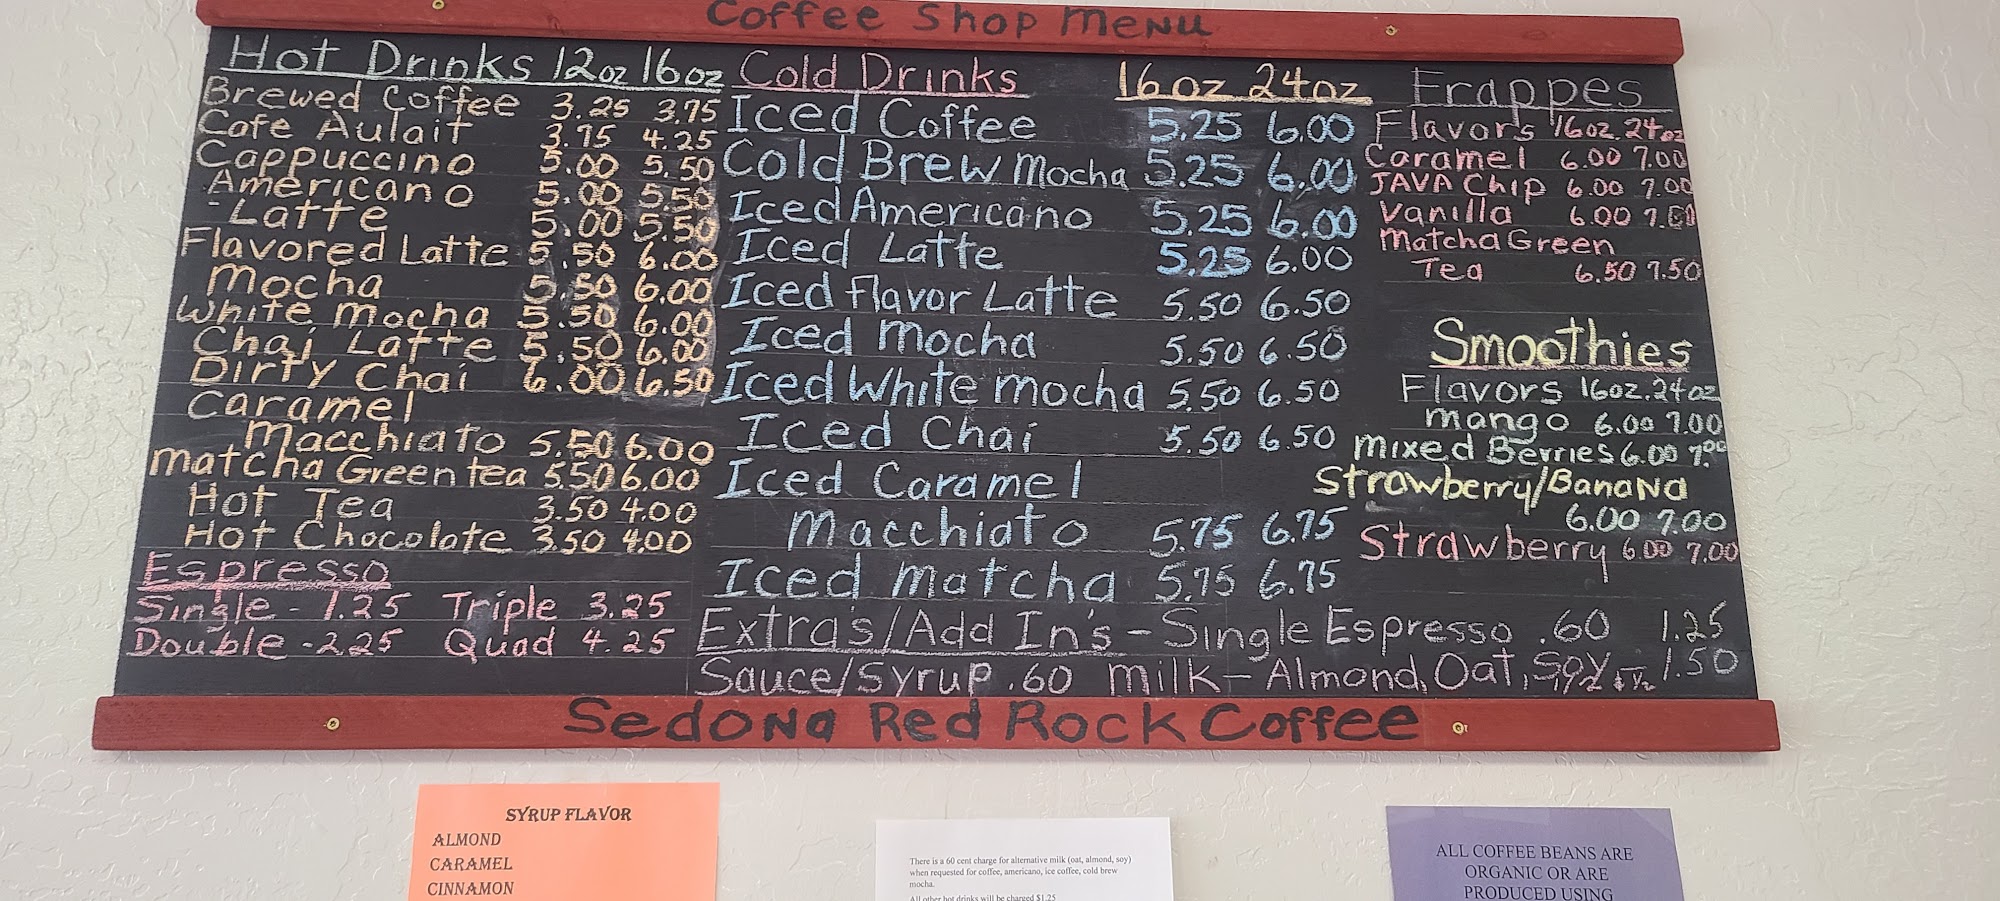 Coffee Shop Menu
Hot Drinks 12oz 16oz
Brewed Coffee 3.25 3.75
Cafe Aulait 3.75 4.25
Cappuccino 5.00 5.50
Americano 5.00 5.50
Latte 5.00 5.50
Flavored Latte 5.50 6.00
Mocha 5.50 6.00
White Mocha 5.50 6.00
Chai Latte 5.50 6.00
Dirty Chai 6.00 6.50
Caramel
Macchiato 5.50 6.00
Matcha Green tea 5.50 6.00
Hot Tea 3.50 4.00
Hot Chocolate 3.50 4.00
Espresso
Single - 1.25 Triple 3.25
Double - 2.25 Quad 4.25
Cold Drinks 16oz 24oz
Iced Coffee 5.25 6.00
Cold Brew Mocha 5.25 6.00
Iced Americano 5.25 6.00
Iced Latte 5.25 6.00
Iced Flavor Latte 5.50 6.50
Iced Mocha 5.50 6.50
Iced White Mocha 5.50 6.50
Iced Chai 5.50 6.50
Iced Caramel
Macchiato 5.75 6.75
Iced Matcha 5.75 6.75
Frappes
Flavors 16oz. 24oz
Caramel 6.00 7.00
JAVA Chip 6.00 7.00
Vanilla 6.00 7.00
Matcha Green
Tea 6.50 7.50
Smoothies
Flavors 16oz. 24oz
Mango 6.00 7.00
Mixed Berries 6.00 7.00
Strawberry/Banana
6.00 7.00
Strawberry 6.00 7.00
Extra's/Add In's - Single Espresso .60 1.25
Sauce/Syrup .60 Milk - Almond, Oat, Soy 1.50
Sedona Red Rock Coffee
SYRUP FLAVOR
ALMOND
CARAMEL
CINNAMON
There is a 60 cent charge for alternative milk (oat, almond, soy)
when requested for coffee, americano, ice coffee, cold brew
mocha.
All other hot drinks will be charged $1.25
ALL COFFEE BEANS ARE
ORGANIC OR ARE
PRODUCED USING